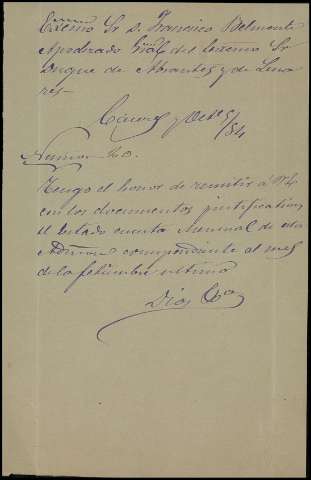 Excmo Sr D. Francisco Belmonte
Apoderado Gral del Excmo Sr
Duque de Abrantes y de Lina
res
Caceres y Octe 5/84
Numero 20.
Tengo el honor de remitir á V.
con los documentos justificativos
el estado cuenta mensual de esta
Admon correspondiente al mes
de la fetiembre ultimo
Dios